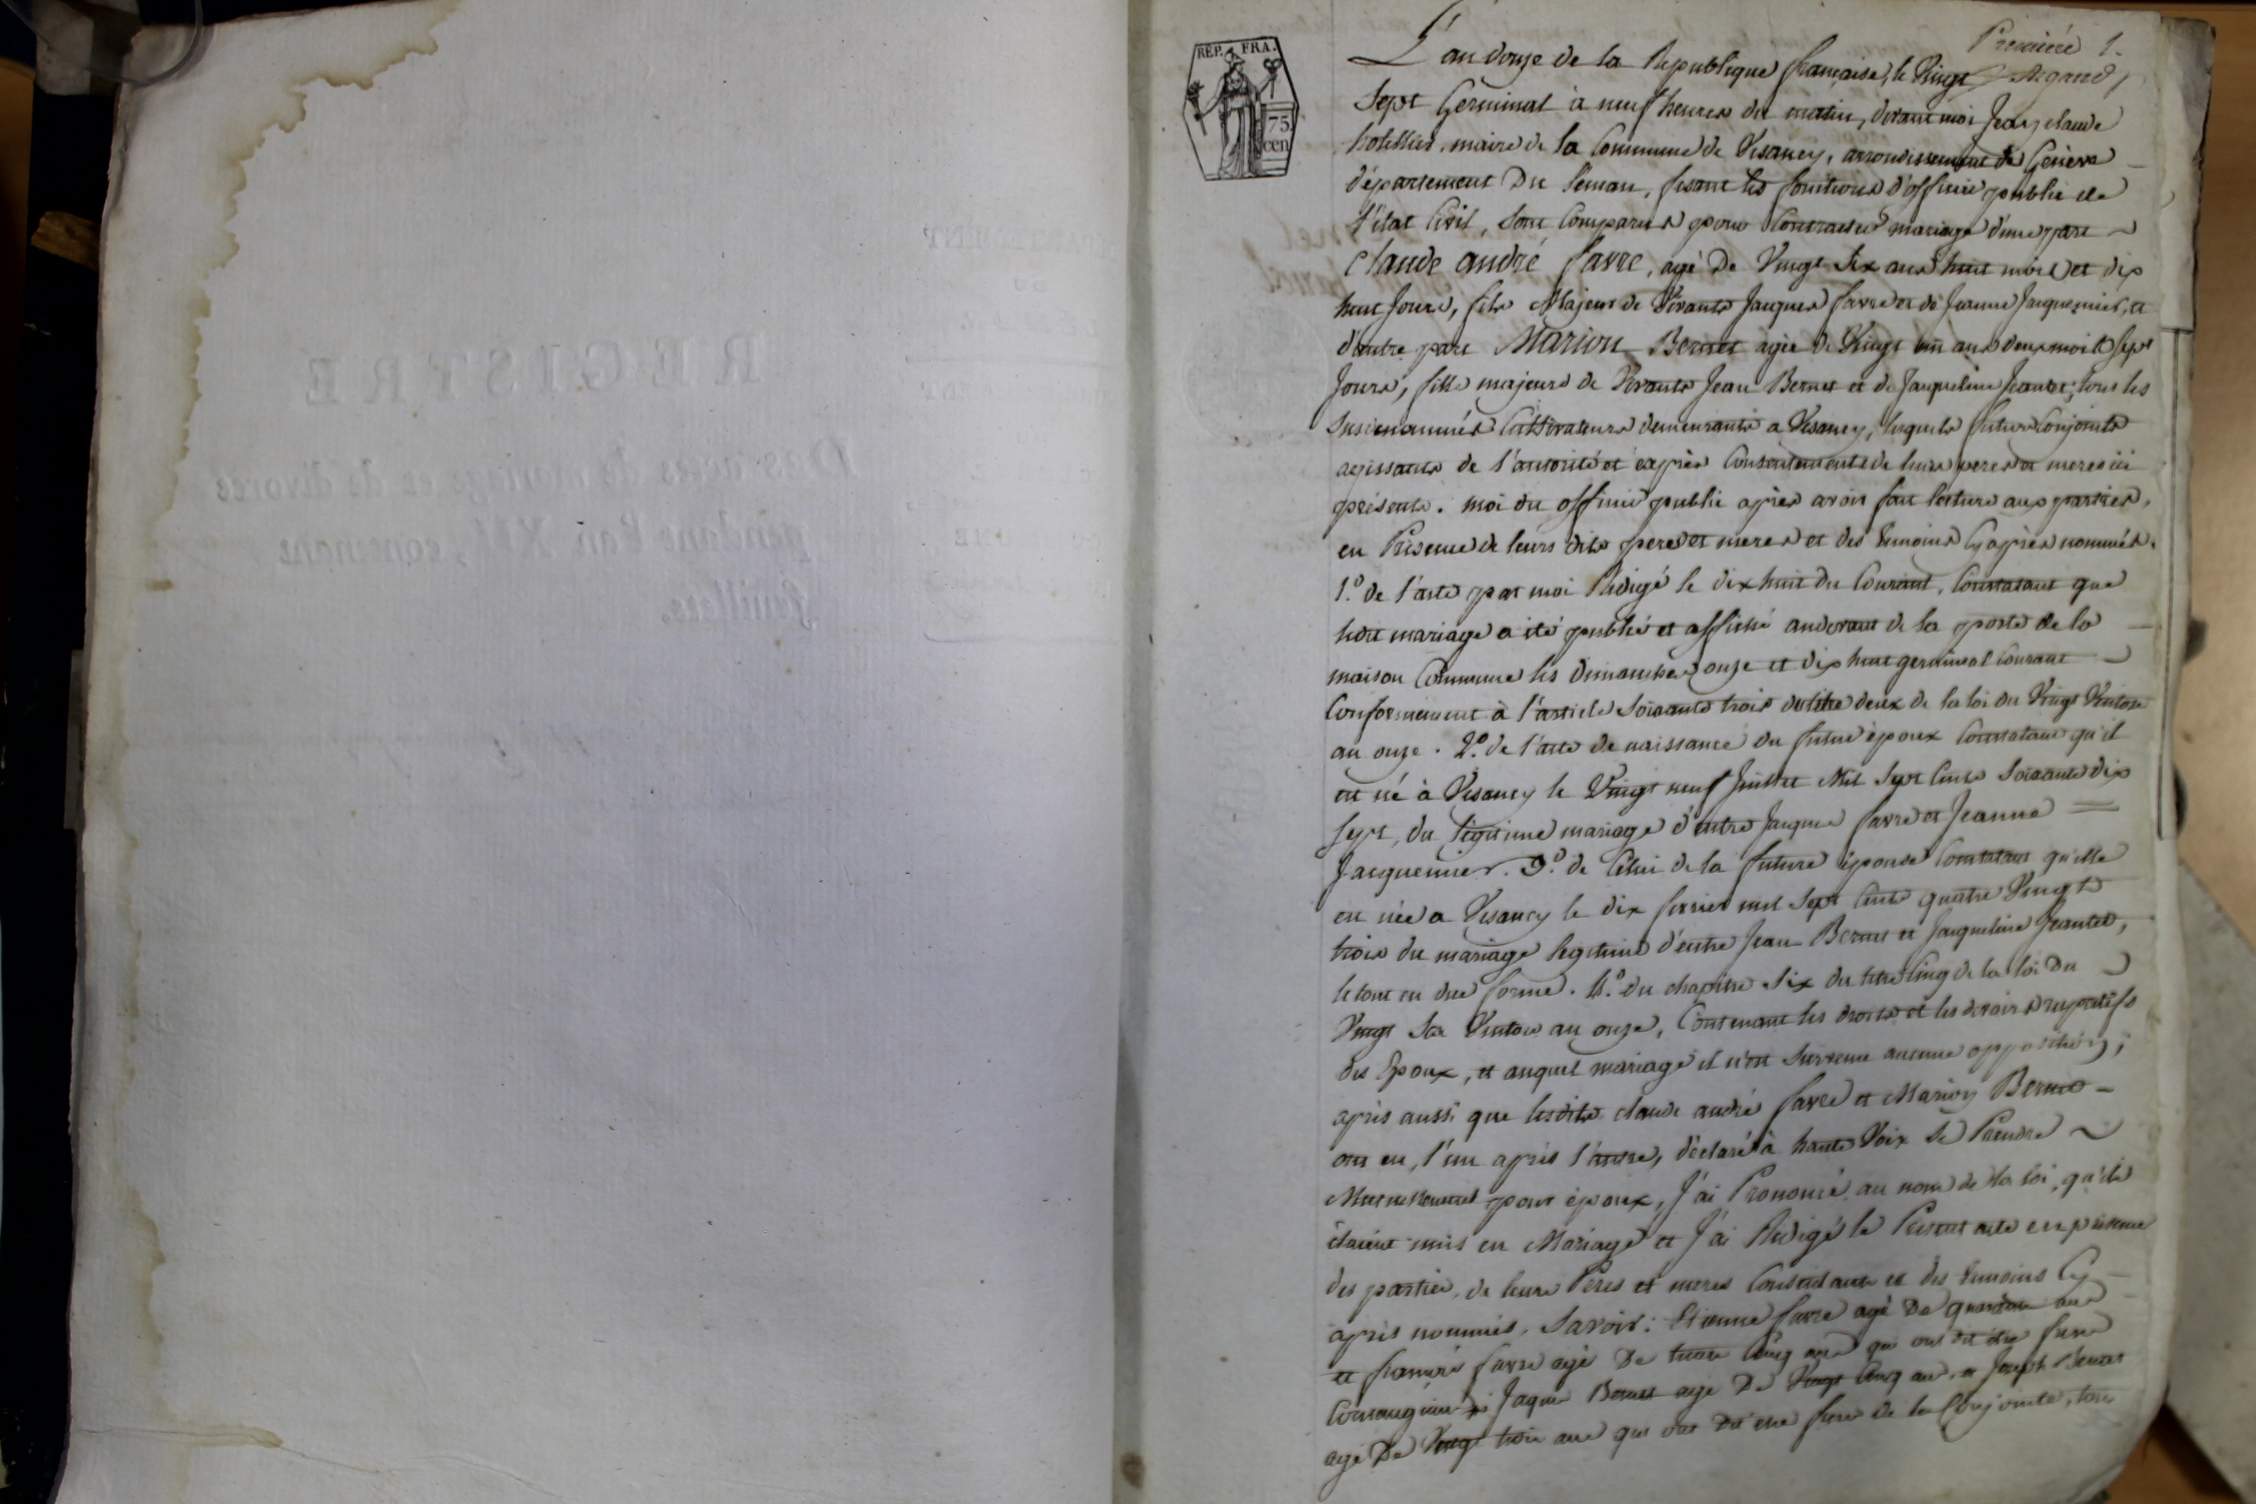 RÉP. FRA.
75
cen
Première 1.
L'an douze de la Republique française, le Vingt
Sept Germinal à neuf heures du matin, devant moi Jean claude
maire de la Commune de Vesancy, arrondissement de Genève
département Du Leman, fesant les fonctions d'officier public de
l'état Civil, sont Comparus pour Contracter mariage d'une part
Claude andré favre, agé De Vingt Six ans huit mois et dix
huit Jours, fils Majeur de Vivants Jacques favre et de Jeanne Jacquemier, et
d'autre part Marion Bernet agée de Vingt un ans deux mois sept
Jours, fille majeure de Vivants Jean Bernet et de Jaqueline Jeantet, tous les
susnommés Cultivateurs demeurants a Vesancy, lesquels futurs Conjoints
agissants de l'autorité et exprès Consentements de leurs peres et meres ici
présents. moi dit officier public après avoir fait lecture aux parties,
en Présence de leurs dits peres et meres et des temoins Cy après nommés.
1.º de l'acte par moi Rédigé le dix huit du Courant, Constatant que
ledit mariage a été publié et affiché audevant de la porte de la
maison Commune les dimanches onze et dix huit germinal Courant
Conformement à l'article Soixante trois du titre deux de la loi du Vingt Ventose
an onze. 2.º de l'acte de naissance du futur époux Constatant qu'il
est né à Vesancy le Vingt neuf Juillet Mil Sept Cents Soixante dix
sept, du légitime mariage d'entre Jacques favre et Jeanne
Jacquemier. 3.º de Celui de la future épouse Constatant qu'elle
est née a Vesancy le dix fevrier mil Sept Cents quatre Vingt
trois du mariage legitime d'entre Jean Bernet et Jaqueline Jeantet,
le tout en due forme. 4.º du chapitre Six du titre Cinq de la loi Du
Vingt Six Ventose an onze, Contenant les droits et les devoirs respectifs
des Epoux, et auquel mariage il n'est survenu aucune opposition;
après aussi que lesdits claude andré favre et Marion Bernet
ont eu, l'un après l'autre, déclaré à haute Voix se Prendre
Mutuellement pour époux, J'ai Prononcé au nom de la loi, qu'ils
étaient unis en Mariage et J'ai Rédigé le Présent acte en présence
des parties, de leurs Péres et meres Consentants et des temoins Cy
après nommés, Savoir: Etienne favre agé De quarante ans
et françois favre agé De trente Cinq ans qui ont dit être frere
Consanguins; Jaques Bernet agé De Vingt Cinq ans, et Joseph Bernet
agé De Vingt trois ans qui ont dit etre frere de la Conjointe, tous